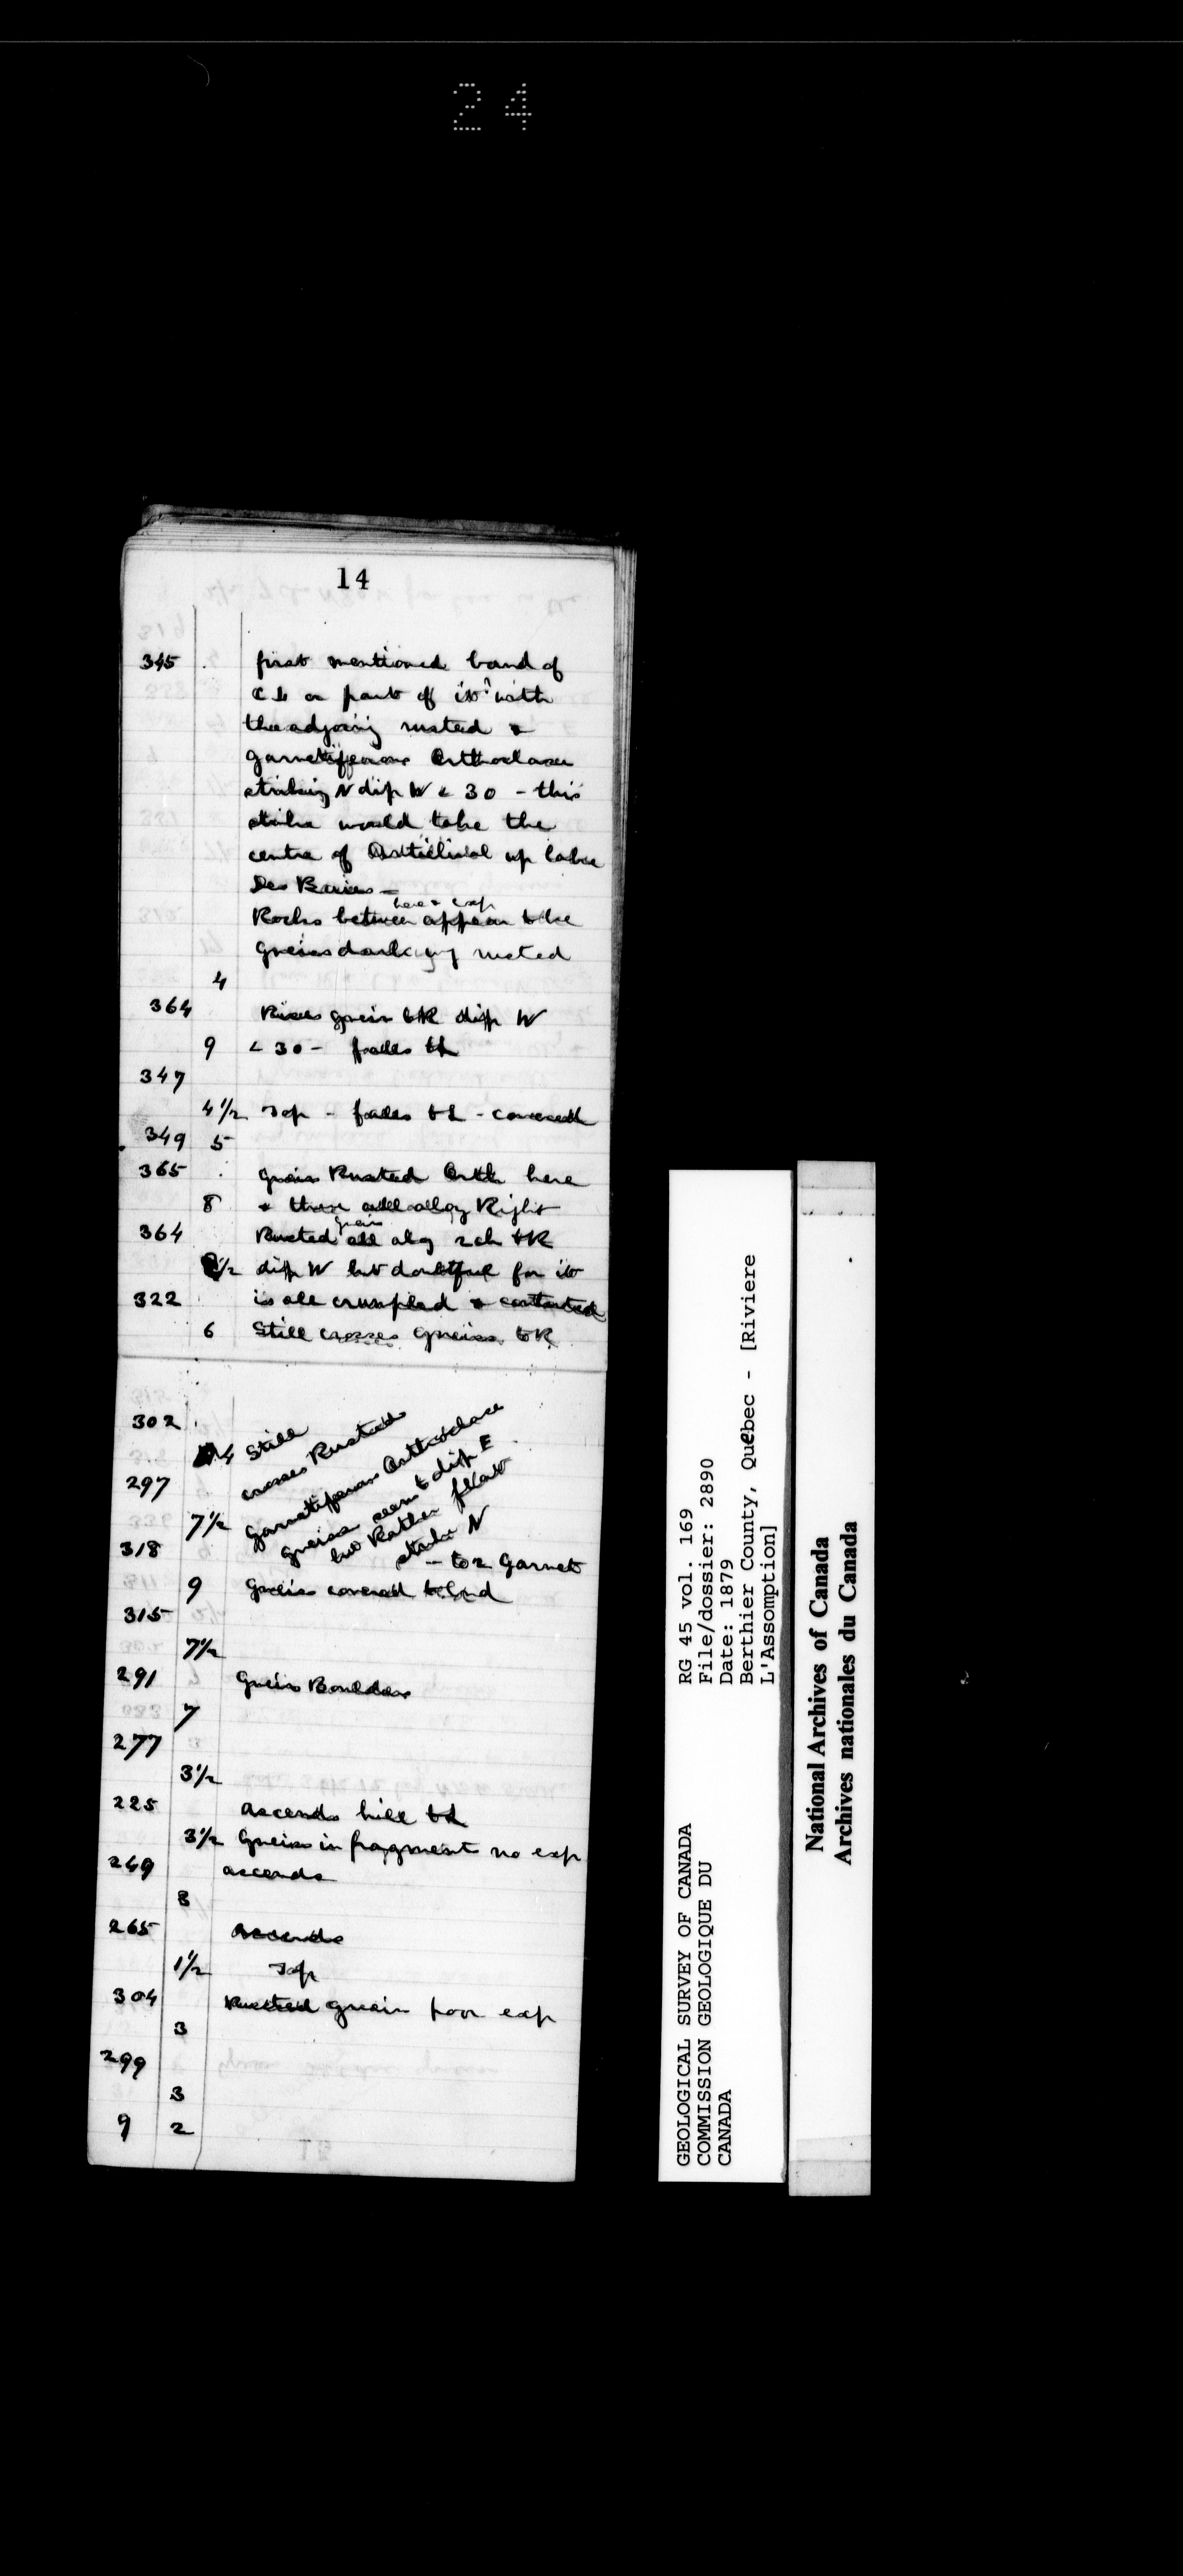 24
14
345 first mentioned band of
C L or part of it with
the adjoing rusted &
garnetiferous Orthoclase
striking N dip W < 30 - this
strike would take the
centre of up lake
Des -
here & exp
Rocks between appear to be
Gneiss dark rusted
4
364 Rises gneiss to R dip W
9 < 30 - falls to L
347
4 1/2 Top - falls to L - covered
349 5
365 gneiss Rusted Orth here
8 & there all along Right
gneiss
364 Rusted all alg 2 ch to R
1/2 dip W but doubtful for it
322 is all crumpled & contorted
6 Still crosses Gneiss to R
302
4 Still
crosses Rusted
297
garnetiferous Orthoclase
7 1/2 gneiss seem to dip E
but Rather flat
318 strike N
- to 2 Garnet
9 Gneiss covered
315
7 1/2
291 Gneiss Boulders
7
277
3 1/2
225 Ascends hill to L
3 1/2 Gneiss in fragments no exp
249 ascends
8
265 Ascends
1 1/2 Top
304 Rusted gneiss poor exp
3
299
3
9 2
GEOLOGICAL SURVEY OF CANADA
COMMISSION GEOLOGIQUE DU
CANADA
RG 45 vol. 169
File/dossier: 2890
Date: 1879
Berthier County, Québec - [Riviere
L'Assomption]
National Archives of Canada
Archives nationales du Canada